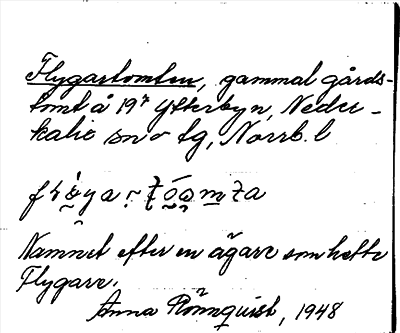 Flygartomten, gammal gårds-
tomt å 19⁴ Ytterbyn, Neder-
kalix sn o tg, Norrb. l
Namnet efter en ägare som hette
Flygare.
Anna Rönnquist, 1948